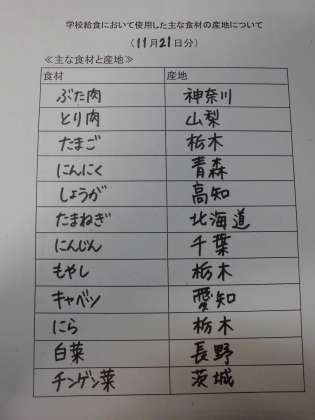 学校給食において使用した主な食材の産地について
（11月21日分）
≪主な食材と産地≫
食材 産地
ぶた肉 神奈川
とり肉 山梨
たまご 栃木
にんにく 青森
しょうが 高知
たまねぎ 北海道
にんじん 千葉
もやし 栃木
キャベツ 愛知
にら 栃木
白菜 長野
チンゲン菜 茨城